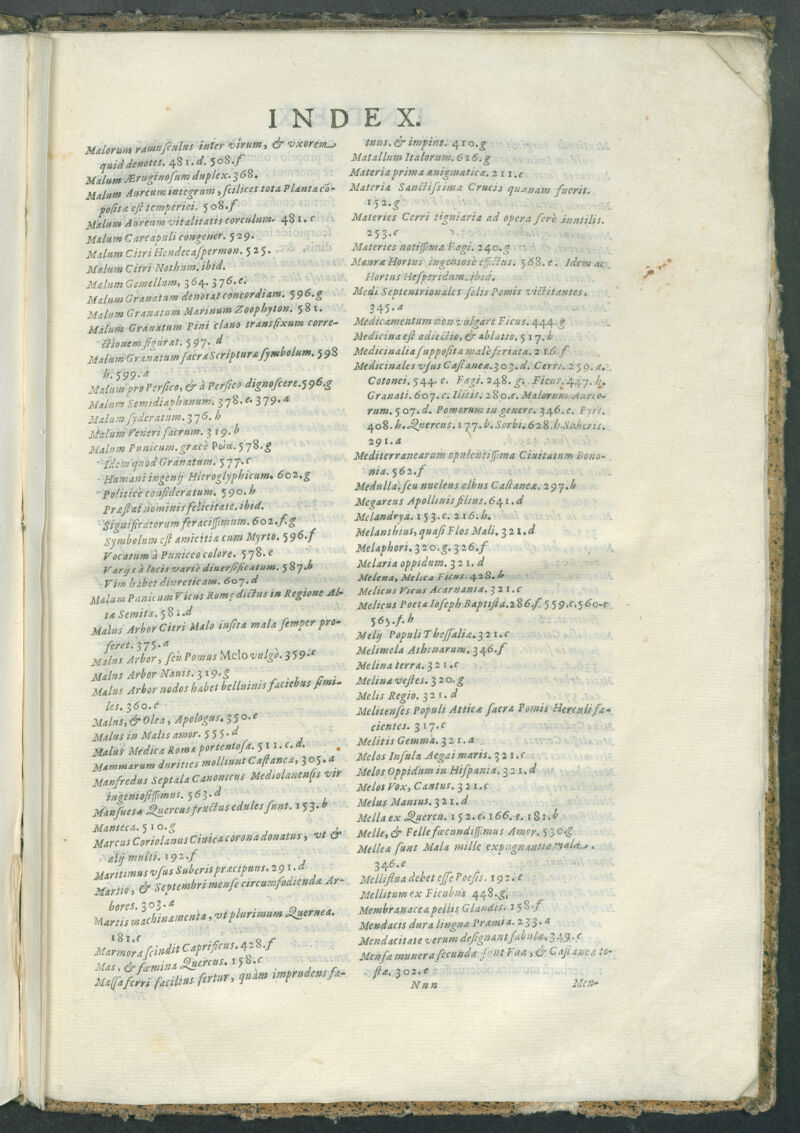 INDEX.
Malorum ramuſculus inter virum, & vxorem
quid denotet. 481.d. 508.f
Malum Æruginoſum duplex. 368.
Malum Aureum integrum, ſcilicet tota Planta cõ-
poſita eſt temperiei. 508.f
Malum Aureum vitalitatis corculum. 481.c
Malum Carcapuli congener. 529.
Malum Citri Hendecaſpermon. 525.
Malum Citri Nothum. ibid.
Malum Gemellum, 364. 376.e.
Malum Granatum denotat concordiam. 596.g
Malum Granatum Marinum Zoophyton. 581.
Malum Granatum Pini clauo transfixum corre-
ctionem figurat. 597. d
Malum Granatum ſacræ Scripturæ ſymbolum. 598
h. 599.a
Malum pro Perſico, & à Perſico dignoſcere. 596.g
Malum Semidiaphanum. 378.e. 379.a
Malum ſyderatum. 376.h
Malum Veneri ſacrum. 319.h
Malum Punicum. græcè Poia. 578.g
Idem quod Granatum. 577.c
Humani ingenij Hieroglyphicum. 602.g
Politicè conſideratum. 590.h
Præſtat nominis felicitate. ibid.
Significatorum feraciſſimum. 602.f.g
Symbolum eſt amicitiæ cum Myrto. 596.f
Vocatum à Puniceo colore. 578.e
Varijs à locis variè diuerſificatum. 587.b
Vim habet diureticam. 607.d
Malum Punicum Vicus Romę dictus in Regione Al-
ta Semita. 581.d
Malus Arbor Citri Malo inſita mala ſemper pro-
feret. 375.a
Malus Arbor, ſeu Pomus Melo vulgò. 359.c
Malus Arbor Nauis. 319.g
Malus Arbor nodos habet belluinis faciebus ſimi-
les. 360.e
Malus, & Olea, Apologus. 350.e
Malus in Malis amor. 555.d
Malus Medica Romæ portentoſa. 511.c.d.
Mammarum durities molliunt Caſtaneæ, 305.a
Manfredus Septala Canonicus Mediolanenſis vir
ingenioſiſſimus. 563.d
Manſuetæ Quercus fructus edules ſunt. 153.b
Manteca. 510.g
Marcus Coriolanus Ciuica corona donatus, vt &
alij multi. 192.f
Maritimus vſus Suberis præcipuus. 291.d
Martio, & Septembri menſe circumfodiendæ Ar-
bores. 303.a
Martis machinamenta, vt plurimum Quernea.
181.e
Marmora ſcindit Caprificus. 428.f
Mas, & fœmina Quercus. 158.c
Maſſa ferri facilius fertur, quàm imprudens fa-
tuus. & impius. 410.g
Matallum Italorum. 616.g
Materia prima ænigmatica. 211.c
Materia Sanctiſsimæ Crucis quænam fuerit.
152.g
Materies Cerri tigniaria ad opera ferè inutilis.
253.c
Materies notiſſima Fagi. 240.g
Mauræ Hortus ingenioſè effictus. 568.e. Idem ac
Hortus Heſperidum. ibid.
Medi Septentrionales ſolis Pomis victitantes.
345.a
Medicamentum non vulgare Ficus. 444.g
Medicina eſt adiectio, & ablatio. 517.b
Medicinalia ſuppoſita malè feriata. 216.f
Medicinales vſus Caſtaneæ. 303.d. Cerri. 259.a.
Cotonei. 544.e. Fagi. 248.g. Ficus. 447.h.
Granati. 607.c. Ilicis. 280.e. Malorum Aureo-
rum. 507.d. Pomorum in genere. 346.e. Pyri.
408.h. Quercus. 177.b. Sorbi. 628.h Suberis.
291.a
Mediterranearum opulentiſſima Ciuitatum Bono-
nia. 562.f
Medulla, ſeu nucleus albus Caſtaneæ. 297.b
Megareus Apollinis filius. 641.d
Melandrya. 153.c. 216.h.
Melanthius, quaſi Flos Mali. 321.d
Melaphori. 320.g. 326.f
Melaria oppidum. 321.d
Melena, Melica Ficus. 428.h
Melicus Vicus Acarnaniæ. 321.c
Melicus Poeta Ioſeph Baptiſta. 286.f. 559.c. 560.e
565.f.h
Melij Populi Theſſaliæ. 321.c
Melimela Athenarum. 346.f
Melina terra. 321.c
Melinæ veſtes. 320.g
Melis Regio. 321.d
Melitenſes Populi Atticæ ſacra Pomis Herculi fa-
cientes. 317.c
Melitis Gemma. 321.a
Melos Inſula Aegai maris. 321.c
Melos Oppidum in Hiſpania. 321.d
Melos Vox, Cantus. 321.c
Melus Mantus. 321.d
Mella ex Quercu. 152.e. 166.e. 181.b
Melle, & Felle fœcundiſſimus Amor. 530.g
Mellea ſunt Mala mille expugnantia mala.
346.e
Melliflua debet eſſe Poeſis. 192.e
Mellitum ex Ficubus 448.g.
Membranacea pellis Glandis. 158.f
Mendacis dura linguæ Præmia. 233.a
Mendacitate verum deſignant fabulæ. 349.c
Menſæ munera ſecundæ ſunt Vuæ, & Caſtaneæ to-
ſtæ. 302.e
Nnn
Men-